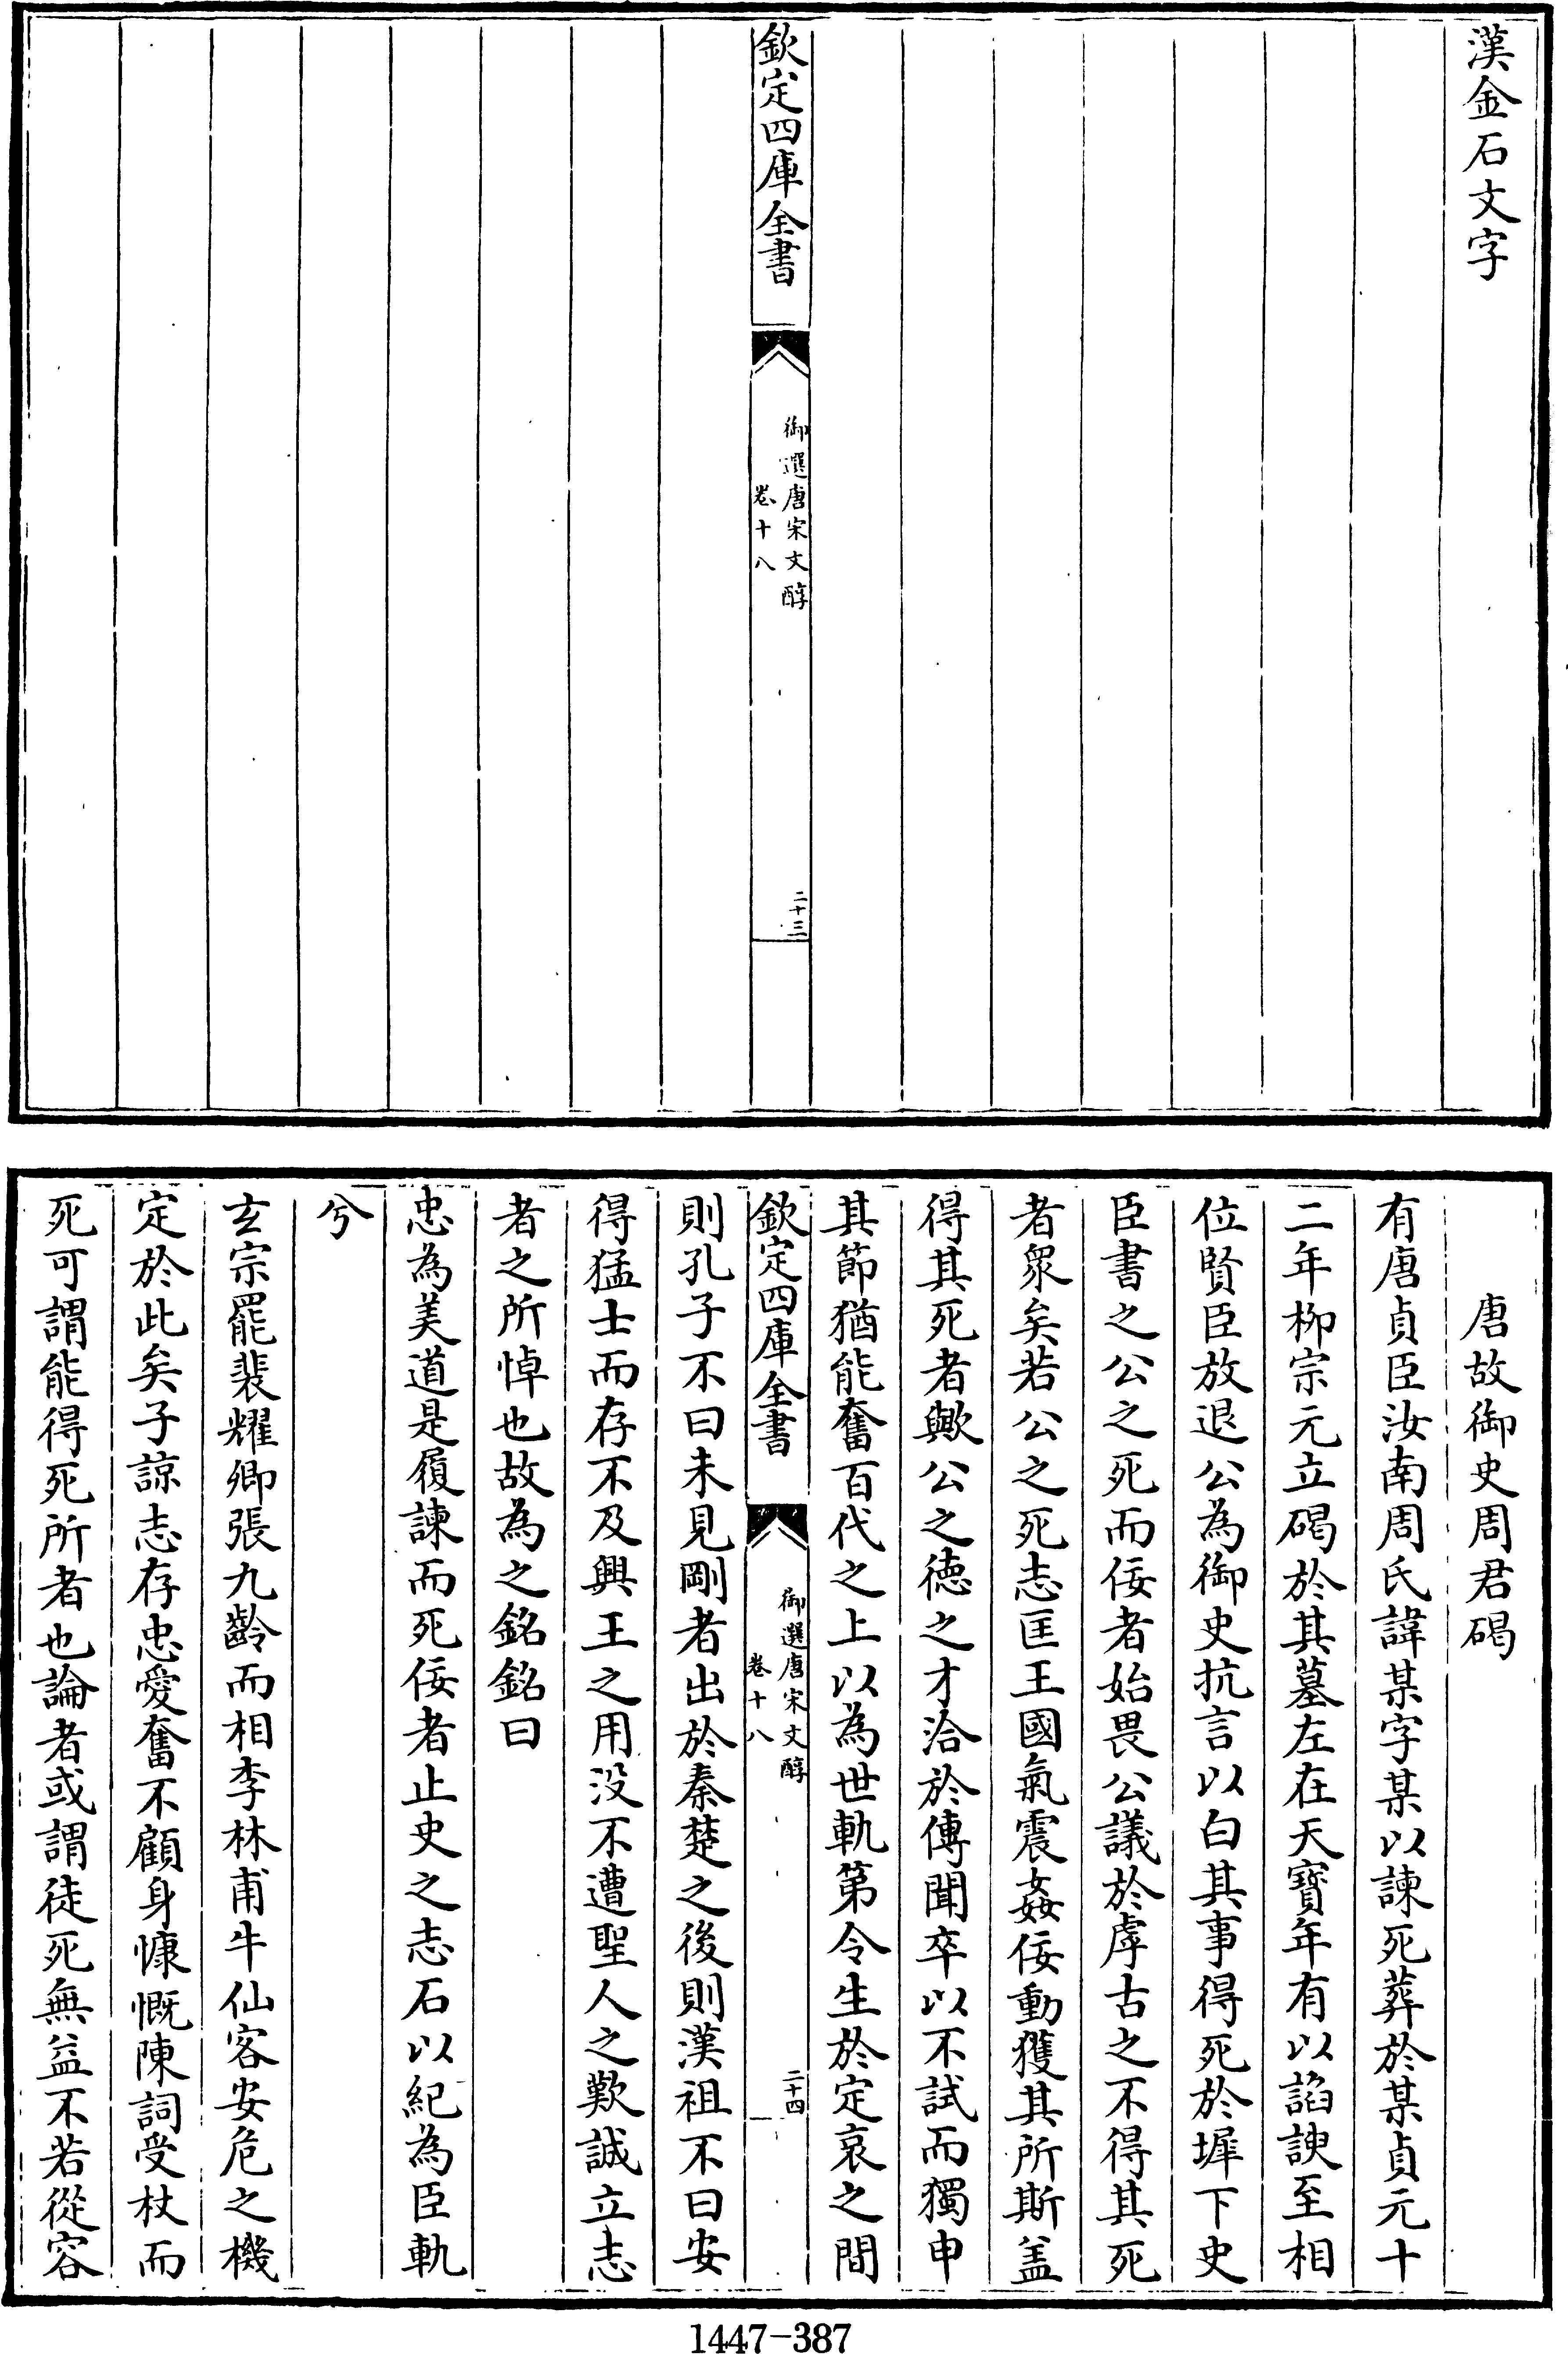 漢金石文字
欽定四庫全書
御選唐宋文醇
卷十八
二十三
唐故御史周君碣
有唐貞臣汝南周氏諱某字某以諫死葬於某貞元十
二年栁宗元立碣於其墓左在天寳年有以諂諛至相
位賢臣放退公為御史抗言以白其事得死於墀下史
臣書之公之死而佞者始畏公議於虖古之不得其死
者衆矣若公之死志匡王國氣震姦佞動獲其所斯盖
得其死者歟公之徳之才洽於傳聞卒以不試而獨申
其節猶能奮百代之上以為世軌第令生於定哀之間
欽定四庫全書
御選唐宋文醇
卷十八
二十四
則孔子不曰未見剛者出於秦楚之後則漢祖不曰安
得猛士而存不及興王之用没不遭聖人之歎誠立志
者之所悼也故為之銘銘曰
忠為美道是履諫而死佞者止史之志石以紀為臣軌
兮
玄宗罷裴耀卿張九齡而相李林甫牛仙客安危之機
定於此矣子諒志存忠愛奮不顧身慷慨陳詞受杖而
死可謂能得死所者也論者或謂徒死無益不若從容
1447-387